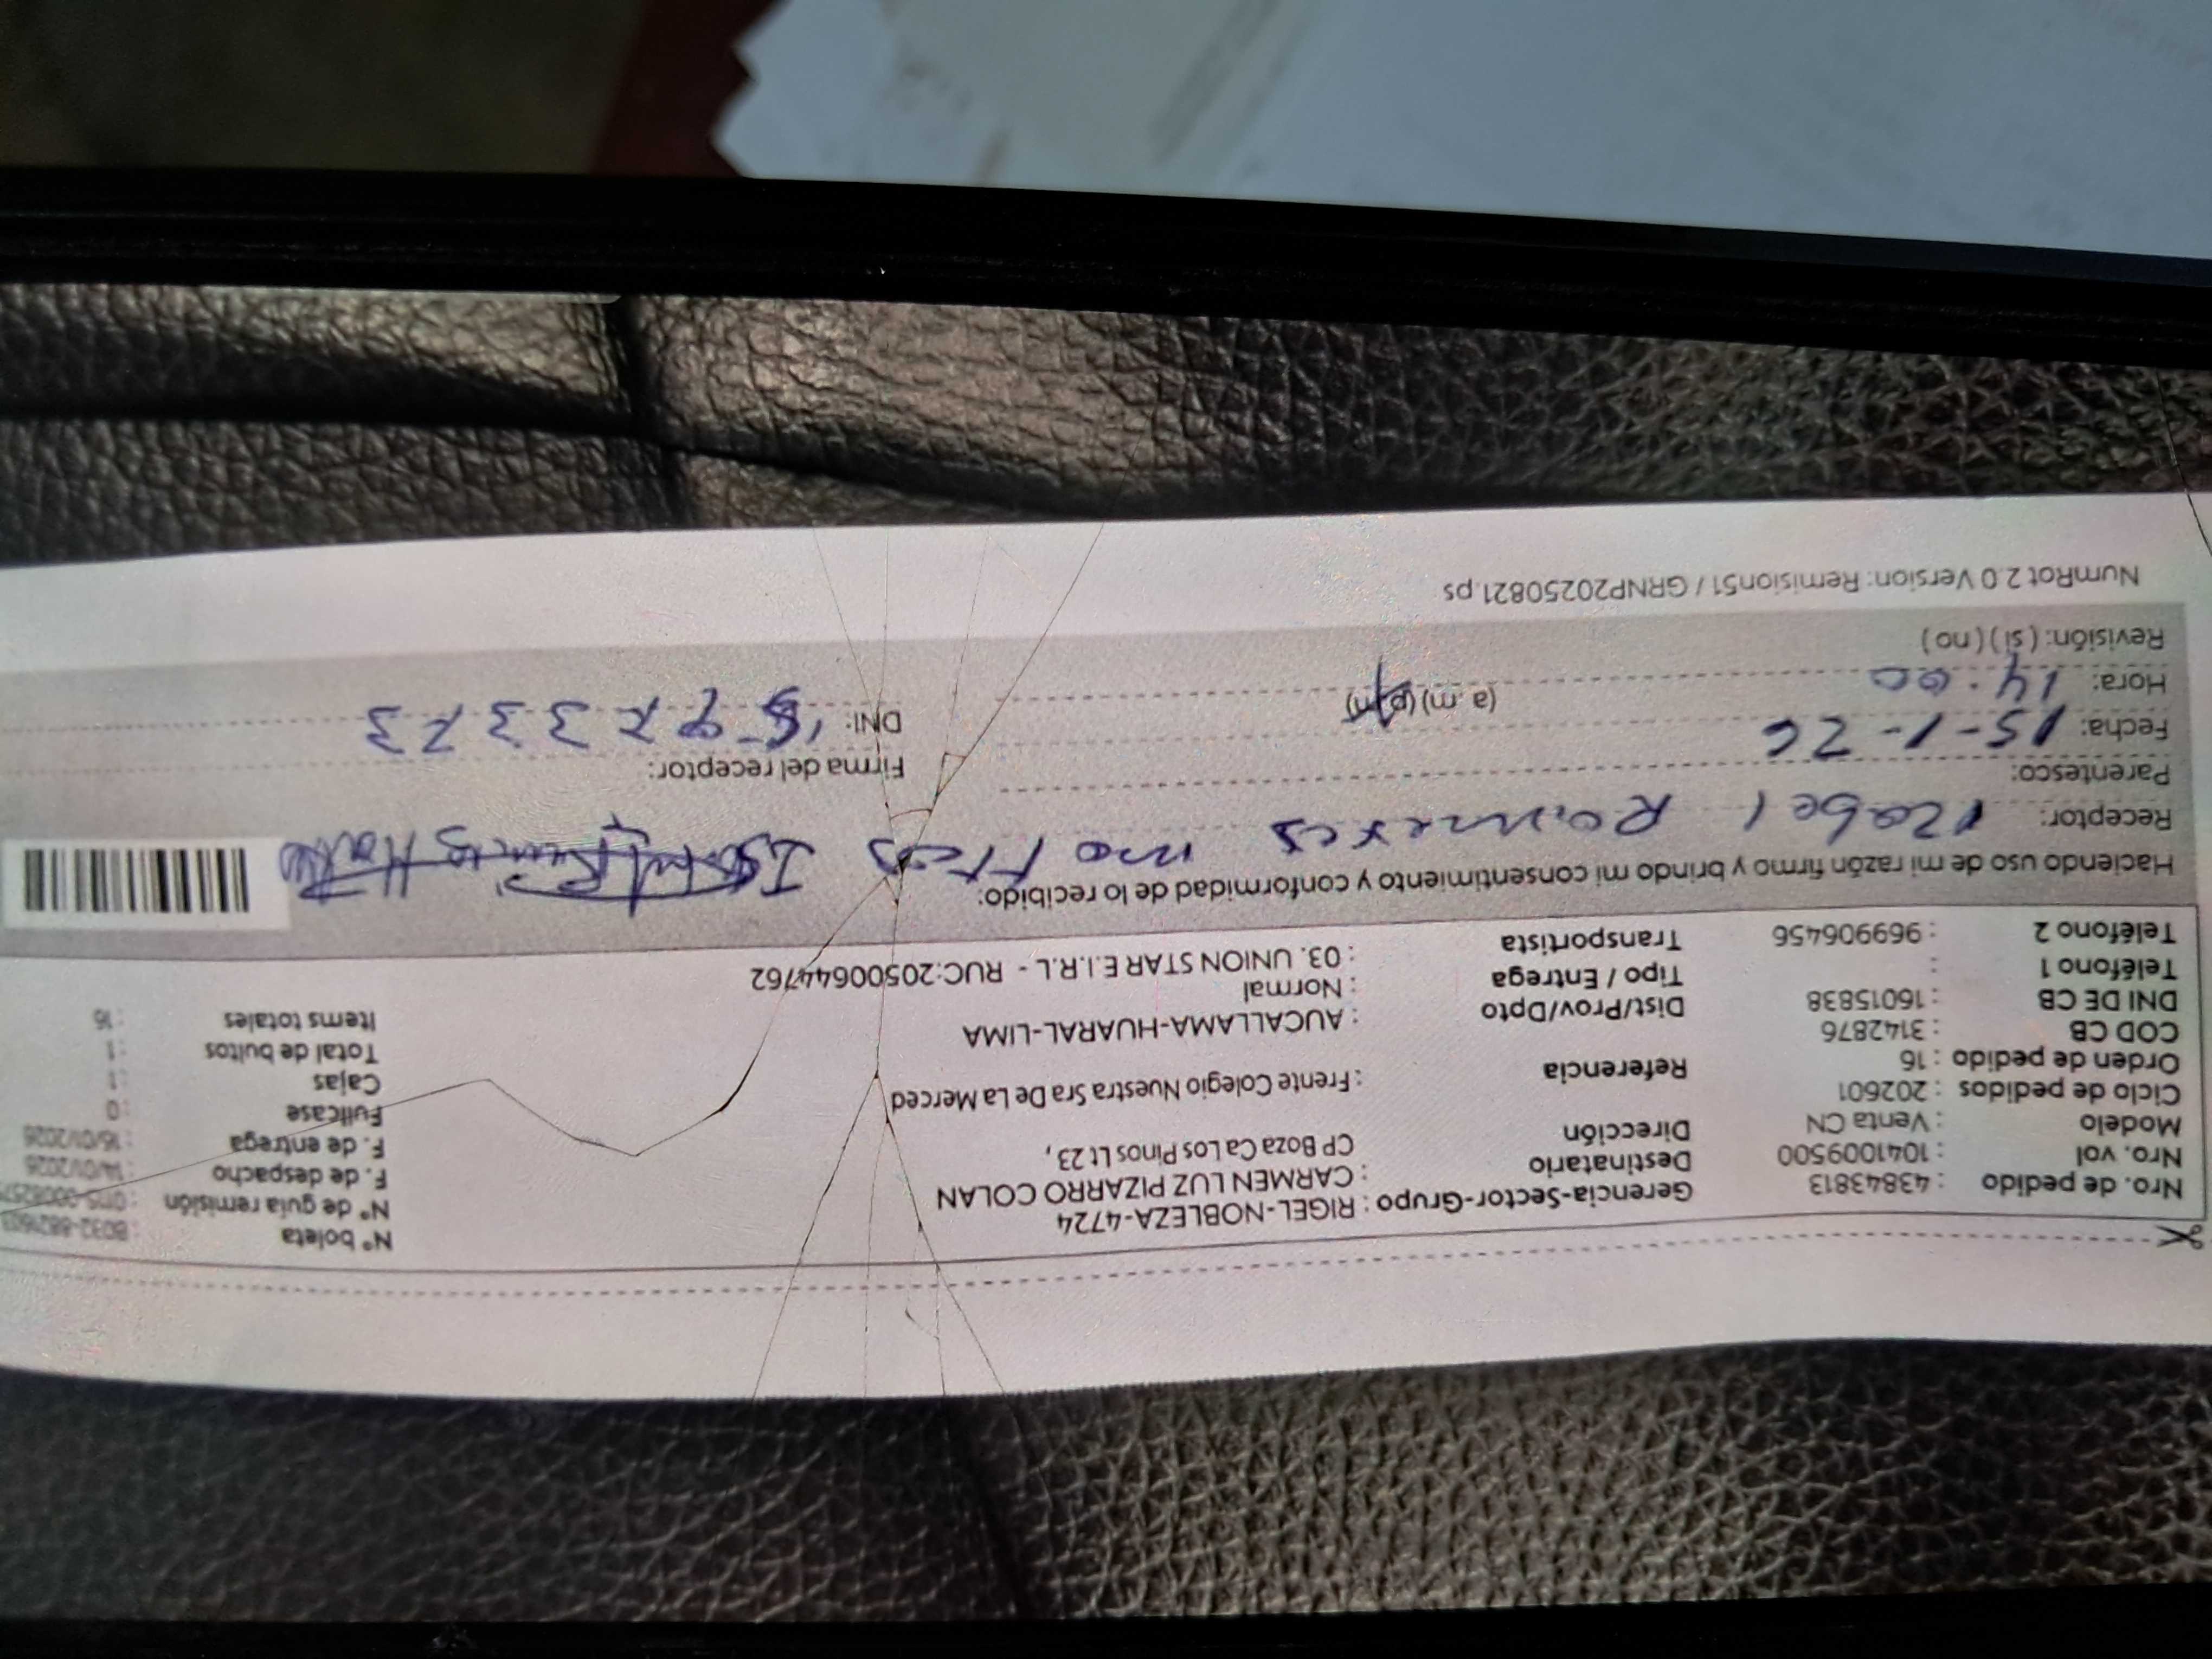 Nro. de pedido : 43843813 Gerencia-Sector-Grupo : RIGEL-NOBLEZA-4724 N° boleta
Nro. vol : 1041009500 Destinatario : CARMEN LUZ PIZARRO COLAN N° de guía remisión
Modelo : Venta CN Dirección CP Boza Ca Los Pinos Lt 23, F. de despacho : 14/01/2026
Ciclo de pedidos : 202601 F. de entrega : 15/01/2026
Orden de pedido : 16 Referencia : Frente Colegio Nuestra Sra De La Merced Fullcase : 0
COD CB : 3142876 Cajas : 1
DNI DE CB : 16015838 Dist/Prov/Dpto : AUCALLAMA-HUARAL-LIMA Total de bultos : 1
Teléfono 1 : Tipo / Entrega : Normal Items totales : 16
Teléfono 2 : 969906456 Transportista : 03. UNION STAR E.I.R.L - RUC:20500644762
Haciendo uso de mi razón firmo y brindo mi consentimiento y conformidad de lo recibido:
Receptor:
Parentesco: Firma del receptor:
Fecha: 15-1-26 DNI:
Hora: 14:00 (a.m) (p.m)
Revisión: (si) (no)
NumRot 2.0 Version: Remision51 / GRNP20250821.ps